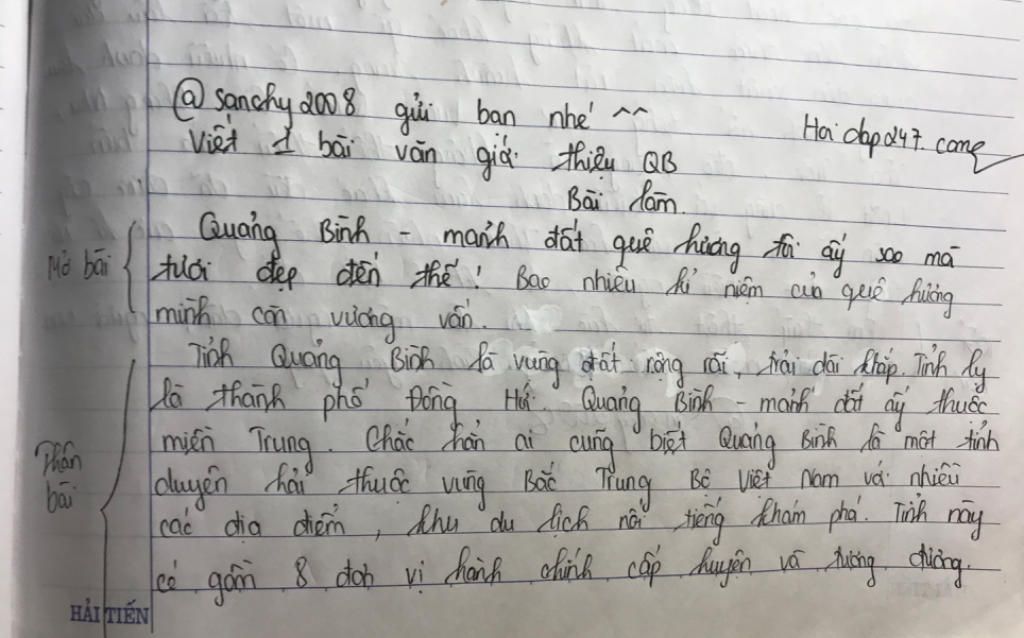 @sanchy2008 gửi bạn nhé ^^
Hoidap247.com
Viết 1 bài văn giới thiệu QB
Bài làm.
Mở bài
Quảng Bình - mảnh đất quê hương tôi ấy sao mà
tươi đẹp đến thế! Bao nhiêu kỉ niệm của quê hương
mình còn vương vấn.
Tỉnh Quảng Bình là vùng đất rộng rãi, trải dài khắp. Tỉnh lỵ
là thành phố Đồng Hới. Quảng Bình - mảnh đất ấy thuộc
miền Trung. Chắc hẳn ai cũng biết Quảng Bình là một tỉnh
Thân bài
duyên hải thuộc vùng Bắc Trung Bộ Việt Nam với nhiều
các địa điểm, khu du lịch nổi tiếng khám phá. Tỉnh này
có gồm 8 đơn vị hành chính cấp huyện và tương đương.
HẢI TIẾN